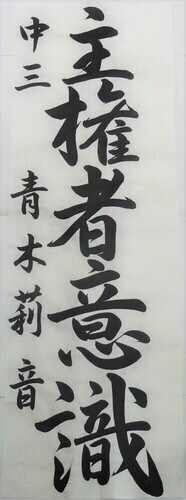 主権者意識
中三 青木莉音